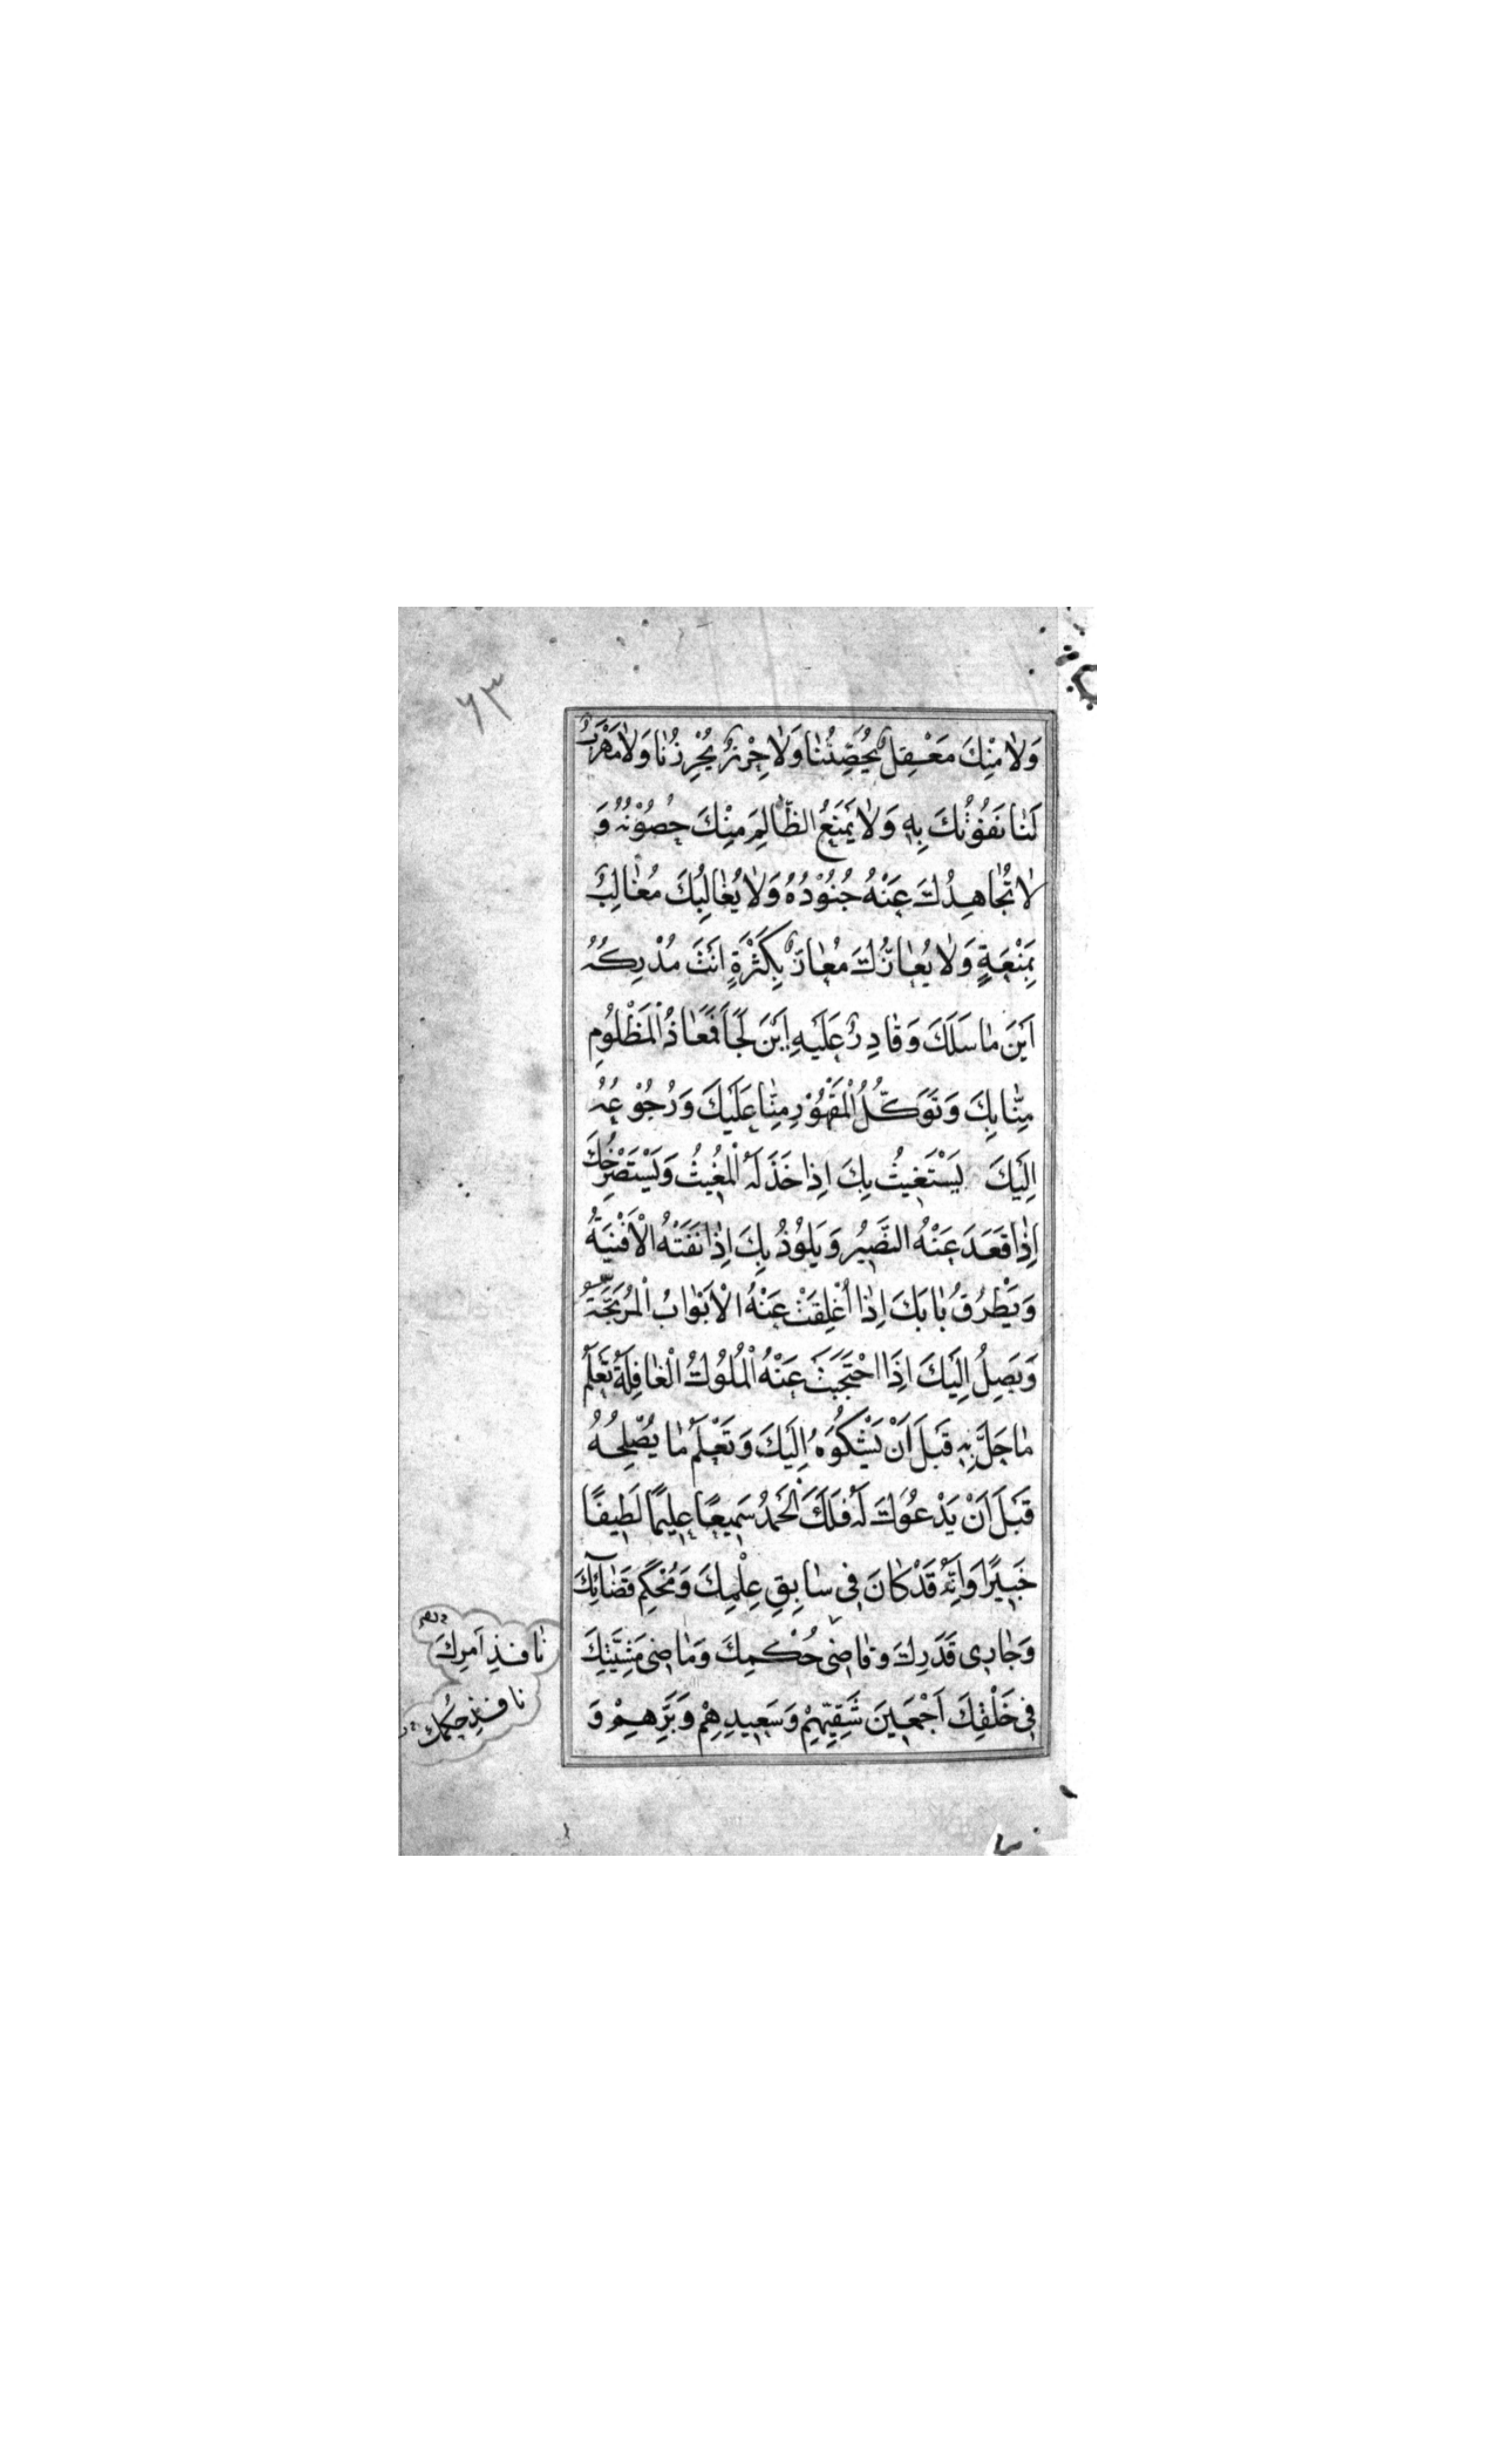 ٦٣
وَلَا مِنْكَ مَعْقِلٌ يُحَصِّنُنَا وَلَا حِرْزٌ يُحْرِزُنَا وَلَا مَهْرَبٌ
لَنَا نَفُوتُكَ بِهِ وَلَا يَمْنَعُ الظَّالِمَ مِنْكَ حُصُوْنُهُ وَ
لَا تُجَاهِدُكَ عَنْهُ جُنُوْدُهُ وَلَا يُغَالِبُكَ مُغَالِبٌ
بِمَنْعَةٍ وَلَا يُعَازُّكَ مُعَازٌّ بِكَثْرَةٍ اَنْتَ مُدْرِكُهُ
اَيْنَ مَا سَلَكَ وَقَادِرٌ عَلَيْهِ اَيْنَ لَجَأَ فَمَعَاذُ الْمَظْلُوْمِ
مِنَّا بِكَ وَتَوَكُّلُ الْمَقْهُوْرِ مِنَّا عَلَيْكَ وَرُجُوْعُهُ
اِلَيْكَ يَسْتَغِيْثُ بِكَ اِذَا خَذَلَهُ الْمُغِيْثُ وَيَسْتَصْرِخُكَ
اِذَا قَعَدَ عَنْهُ النَّصِيْرُ وَيَلُوْذُ بِكَ اِذَا نَفَتْهُ الْاَفْنِيَةُ
وَيَطْرُقُ بَابَكَ اِذَا اُغْلِقَتْ عَنْهُ الْاَبْوَابُ الْمُرْتَجَةُ
وَيَصِلُ اِلَيْكَ اِذَا احْتَجَبَتْ عَنْهُ الْمُلُوْكُ الْغَافِلَةُ تَعْلَمُ
مَا حَلَّ بِهِ قَبْلَ اَنْ يَشْكُوَهُ اِلَيْكَ وَتَعْلَمُ مَا يُصْلِحُهُ
قَبْلَ اَنْ يَدْعُوَكَ لَهُ فَلَكَ الْحَمْدُ سَمِيْعًا عَلِيْمًا لَطِيفًا
خَبِيْرًا وَاِنَّهُ قَدْ كَانَ فِى سَابِقِ عِلْمِكَ وَمُحْكَمِ قَضَائِكَ
وَجَارِى قَدَرِكَ وَقَاضِى حُكْمِكَ وَمَاضِى مَشِيَّتِكَ
فِى خَلْقِكَ اَجْمَعِيْنَ شَقِيِّهِمْ وَسَعِيْدِهِمْ وَبَرِّهِمْ وَ
نَافِذِ اَمْرِكَ
نَافِذِ حُكْمِكَ